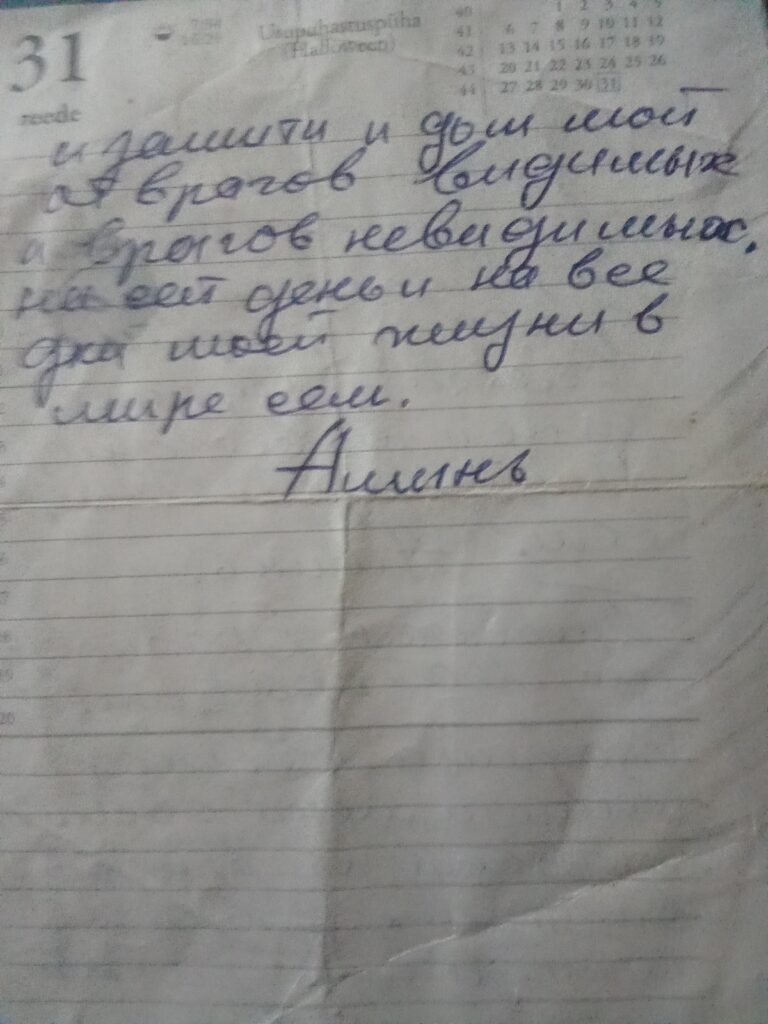 31
reede
Usupuhastuspüha
(Halloween)
40 1 2 3 4 5
41 6 7 8 9 10 11 12
42 13 14 15 16 17 18 19
43 20 21 22 23 24 25 26
44 27 28 29 30 31
и защити и дом мой
от врагов видимых
и врагов невидимых.
на сей день и на все
дна моей жизни в
мире сем.
Аминь
20